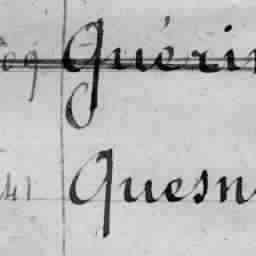 Guérin
41 Quesn